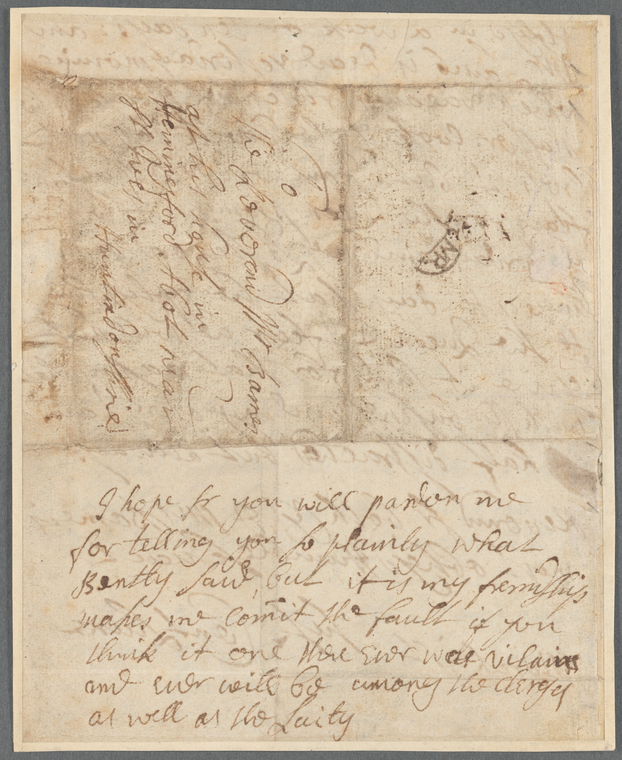 The Reverend Mr Barnes
at his hous in
Hemnesford Abot near
St Ives in
Huntindonshire
I hope sr you will pardon me
for telling you so plainly what
Bently said, but it is my frendship
makes me comit the fault if you
think it one there ever wer vilains
and ever will be among the clergy
as well as the Laity